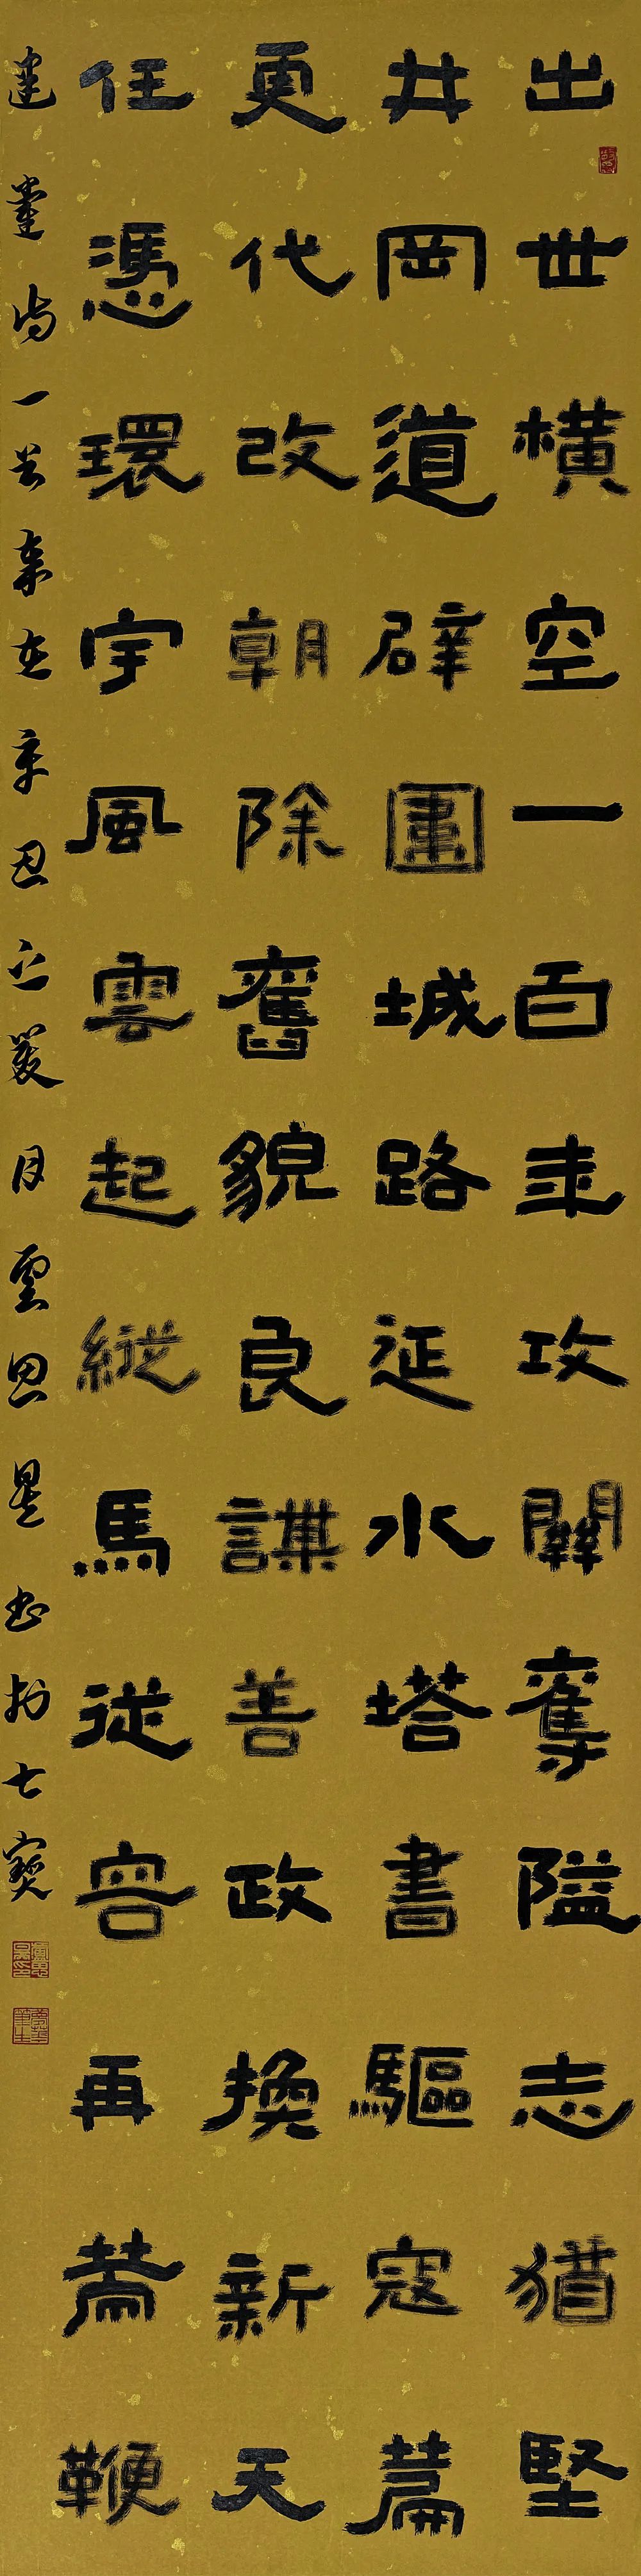 出世橫空一百年攻關奪隘志猶堅
井岡道辟圍城路延水塔書驅寇篇
更代改朝除舊貌良謨善政換新天
任憑環宇風雲起縱馬從容再鞭
建黨一辛丑之月雲書於七寶